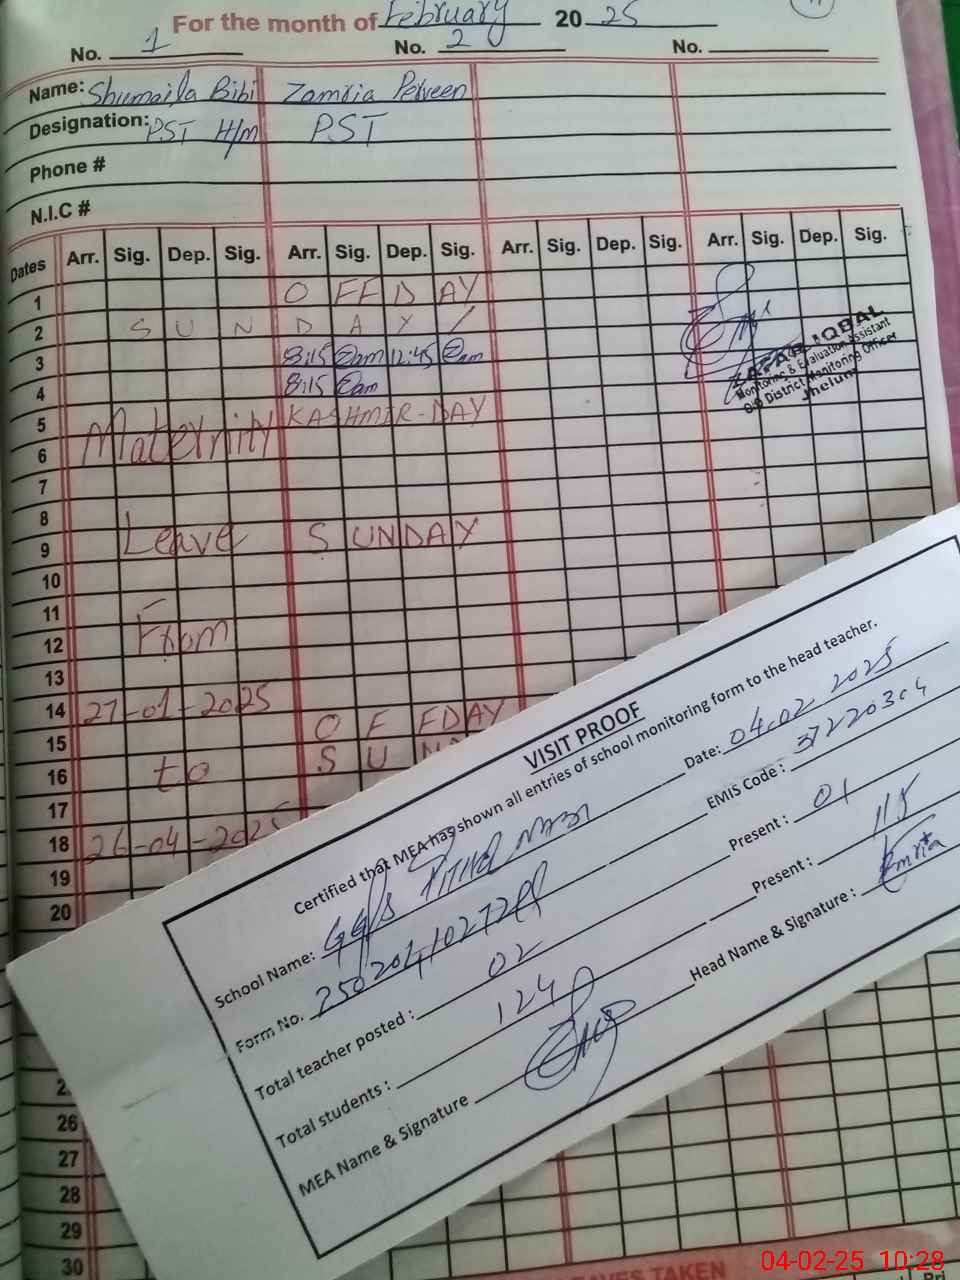 For the month of February 2025
No. 1 No. 2 No.
Name: Shumaila Bibi Zamria Perveen
Designation: PST H/m PST
Phone #
N.I.C #
Dates Arr. Sig. Dep. Sig. Arr. Sig. Dep. Sig. Arr. Sig. Dep. Sig. Arr. Sig. Dep. Sig.
1 OFFDAY
2 SUNDAY
3 8:15 12:45
4 8:15
5 KASHMIR-DAY
Maternity
6
7
8
9 Leave SUNDAY
10
11
12 From
13
14 27-01-2025
15 OFFDAY
16 to SUN
17
18 26-04-2025
19
20
26
27
28
29
30
ZAFAR IQBAL
Monitoring & Evaluation Assistant
O/O District Monitoring Officer
Jhelum
VISIT PROOF
Certified that MEA has shown all entries of school monitoring form to the head teacher.
School Name: GGPS Date: 04.02.2025
Form No. EMIS Code: 37220304
Total teacher posted: 02 Present: 01
Total students: 124 Present: 115
MEA Name & Signature Head Name & Signature:
LEAVES TAKEN
Fri
04-02-25 10:28